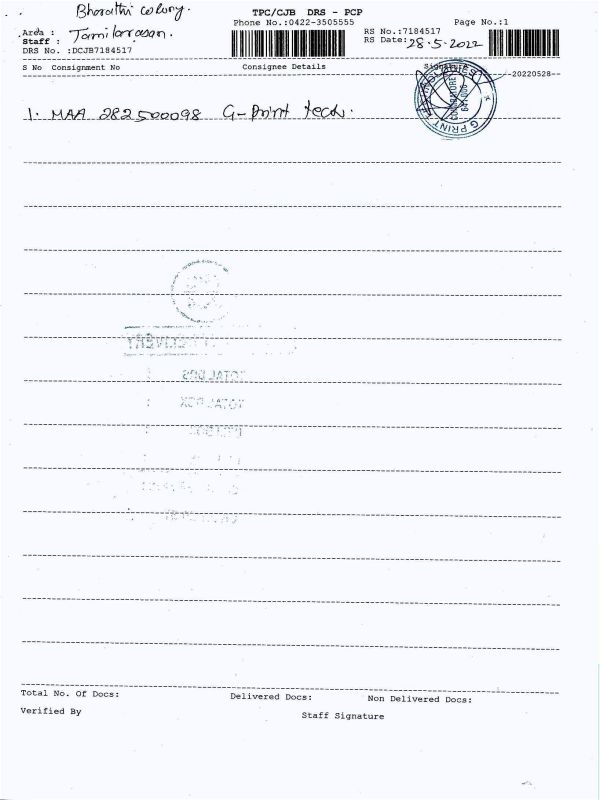 Bharathi colony.
TPC/CJB DRS - PCP
Phone No.:0422-3505555
Page No.:1
Area :
Staff : Tamilarasan.
DRS No. :DCJB7184517
RS No.:7184517
RS Date: 28.5.2022
S No Consignment No
Consignee Details
--20220528--
1. MAA 282500098 G-Print tech.
COIMBATORE
G PRINT
DELIVERY
TOTAL DRS :
TOTAL POX :
Total No. Of Docs:
Delivered Docs:
Non Delivered Docs:
Verified By
Staff Signature